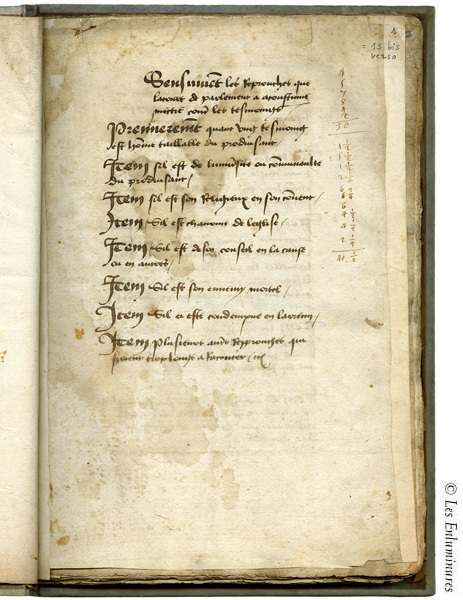 Sensuivent les Reprouches que
la court de parlement a acoustume
mettre contre les tesmoings
Premierement quant ung tesmoing
est homme taillable du produisant
Item sil est de luniversite ou communaulte
du produisant
Item sil est son Religieux en son couvent
Item sil est chanoine de leglise
Item sil est de son conseil en la cause
ou en autres
Item sil est son ennemy mortel
Item sil a este condempne
Item plusieurs autres Reprouches qui
seroient trop longs a Raconter
1
= 13 bis
verso
© Les Enluminures